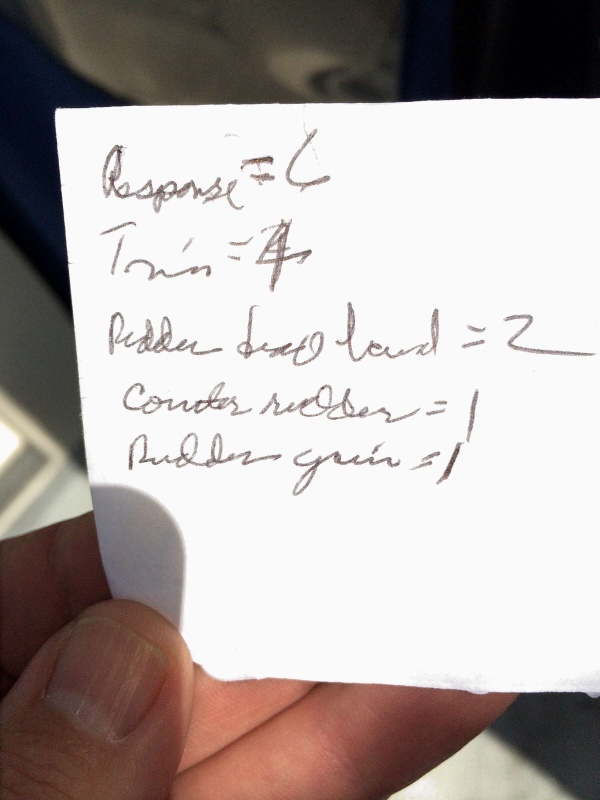 Response = 6
Trim = 4
Rudder dead band = 2
Counter rudder = 1
Rudder gain = 1